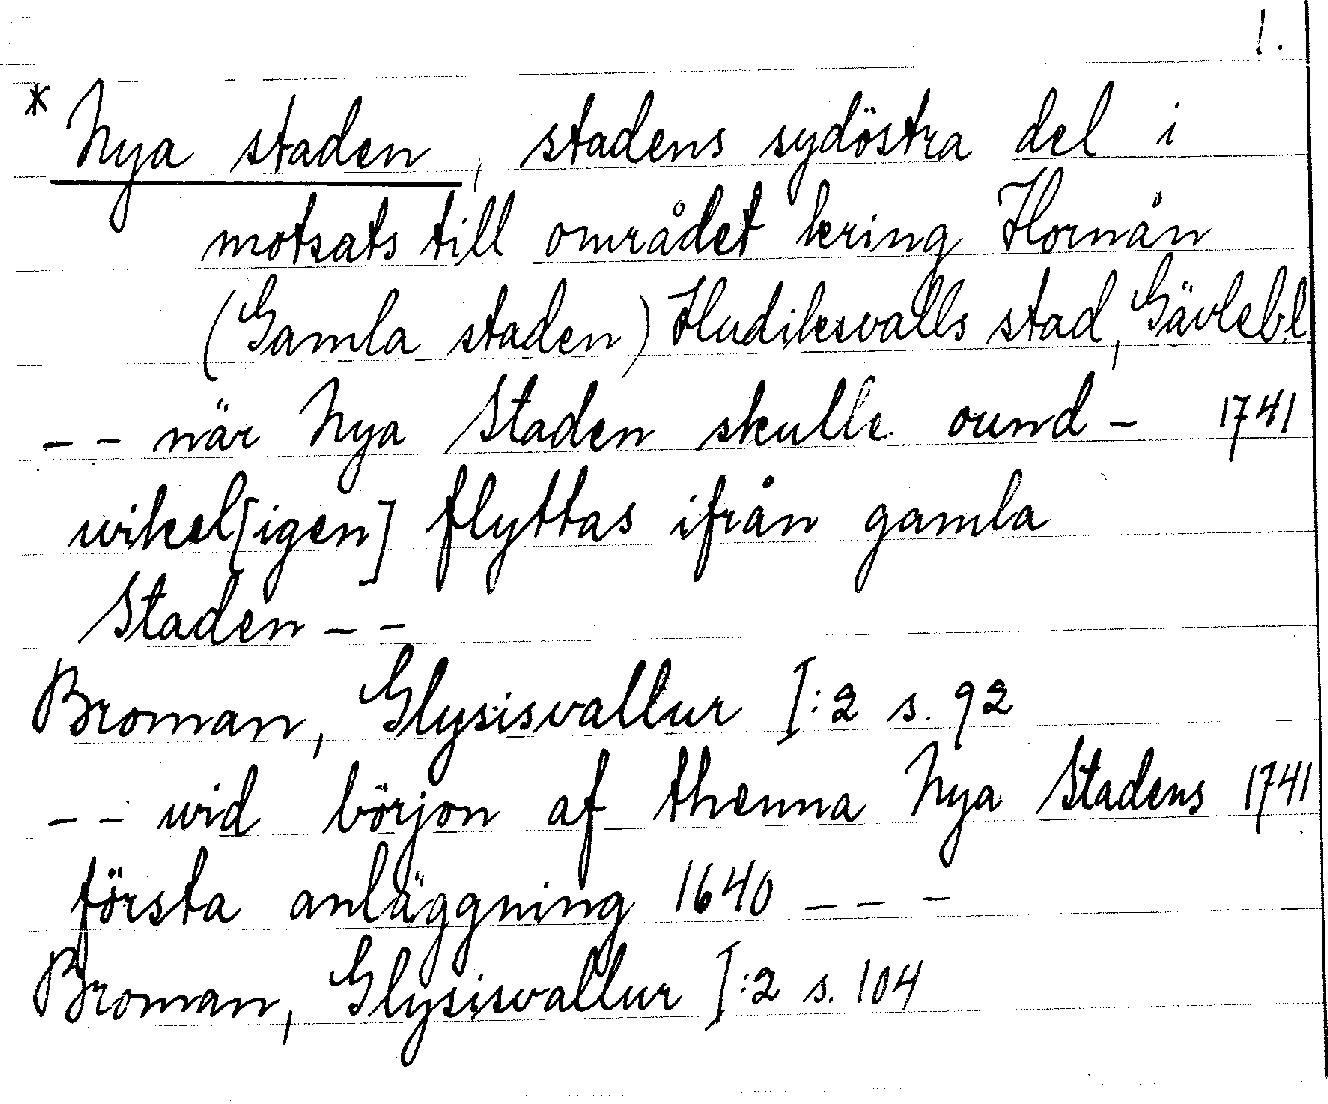 1.
* Nya staden, stadens sydöstra del i
motsats till området kring Hornån
(Gamla staden) Hudiksvalls stad, Gävlebl
-- när Nya Staden skulle ound- 1741
wikel[igen] flyttas ifrån gamla
Staden --
Broman, Glysisvallur I:2 s. 92
-- wid börjon af thenna Nya Stadens 1741
första anläggning 1640 ---
Broman, Glysisvallur I:2 s. 104